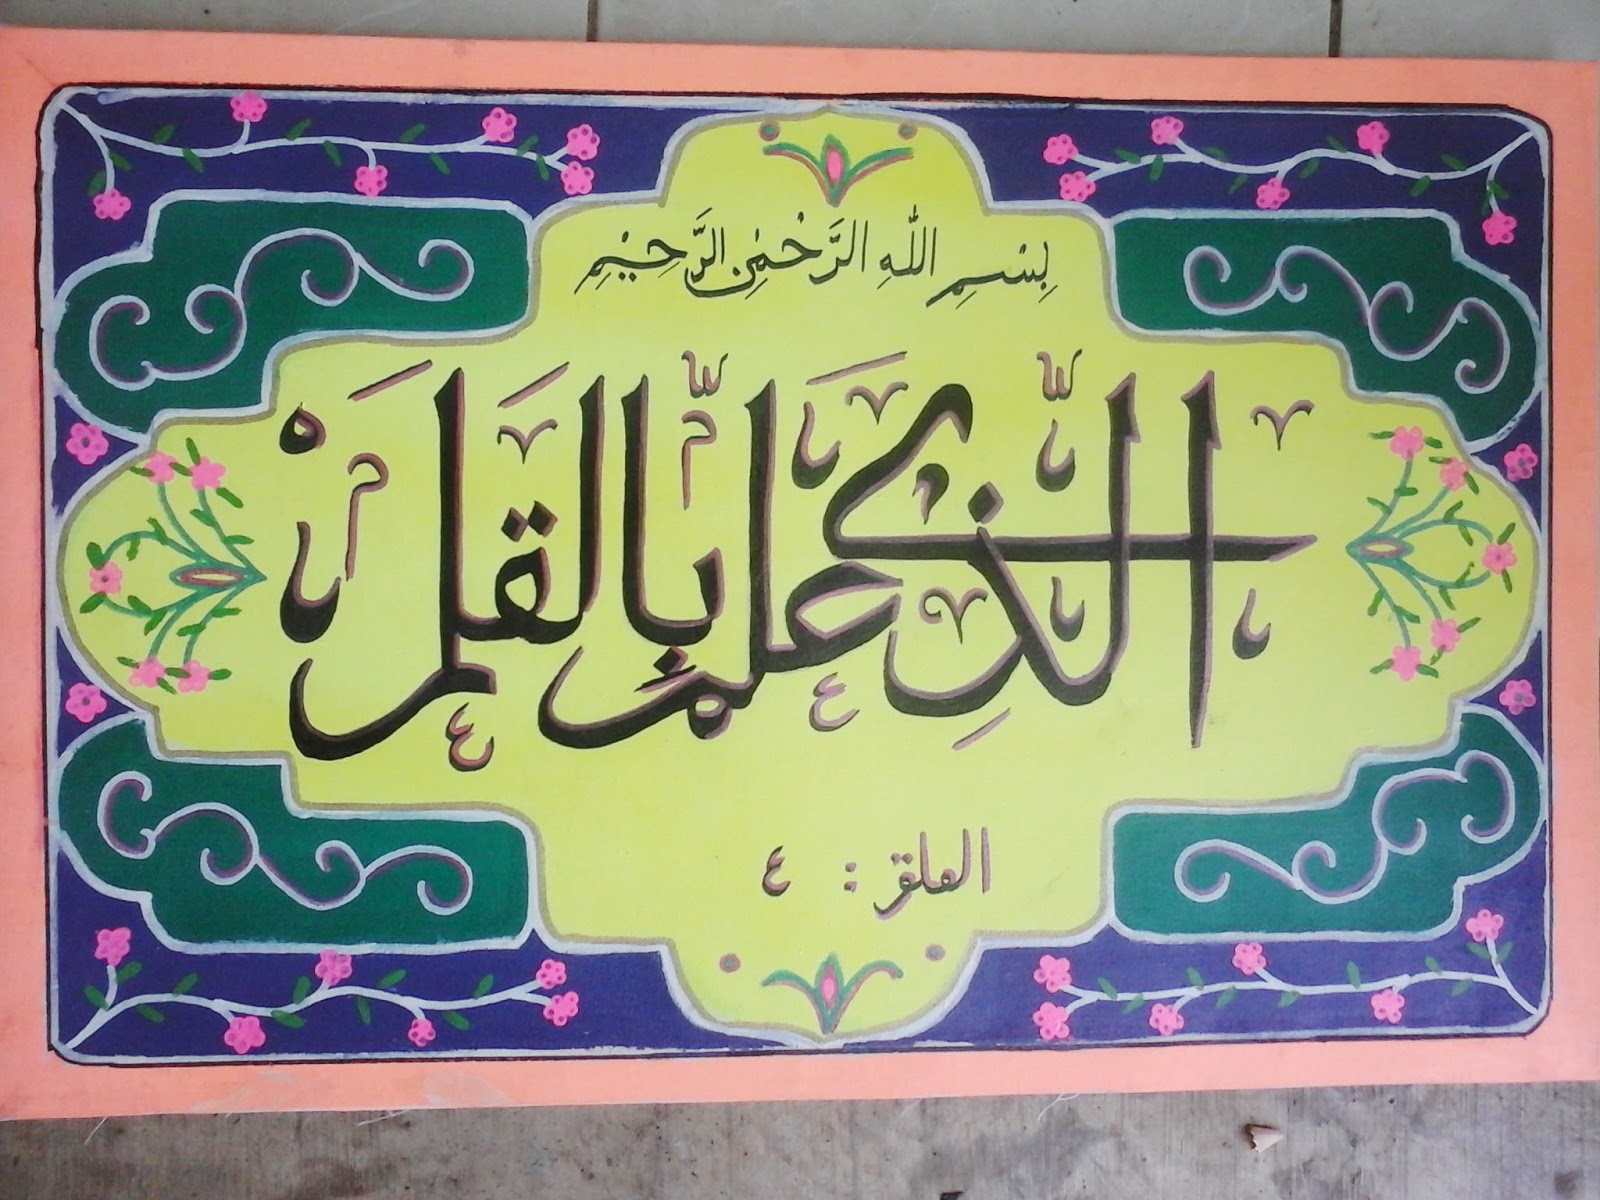 بِسْمِ اللهِ الرَّحْمٰنِ الرَّحِيْمِ
الَّذِى عَلَّمَ بِالْقَلَمِ
العلق : ٤